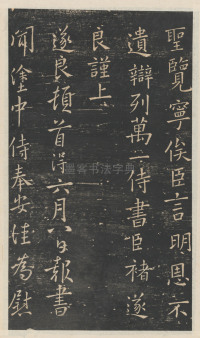 聖覽寧俟臣言明恩示
遺辯列萬一侍書臣褚遂
良謹上
遂良頓首得六月八日報書
聞塗中侍奉安佳為慰